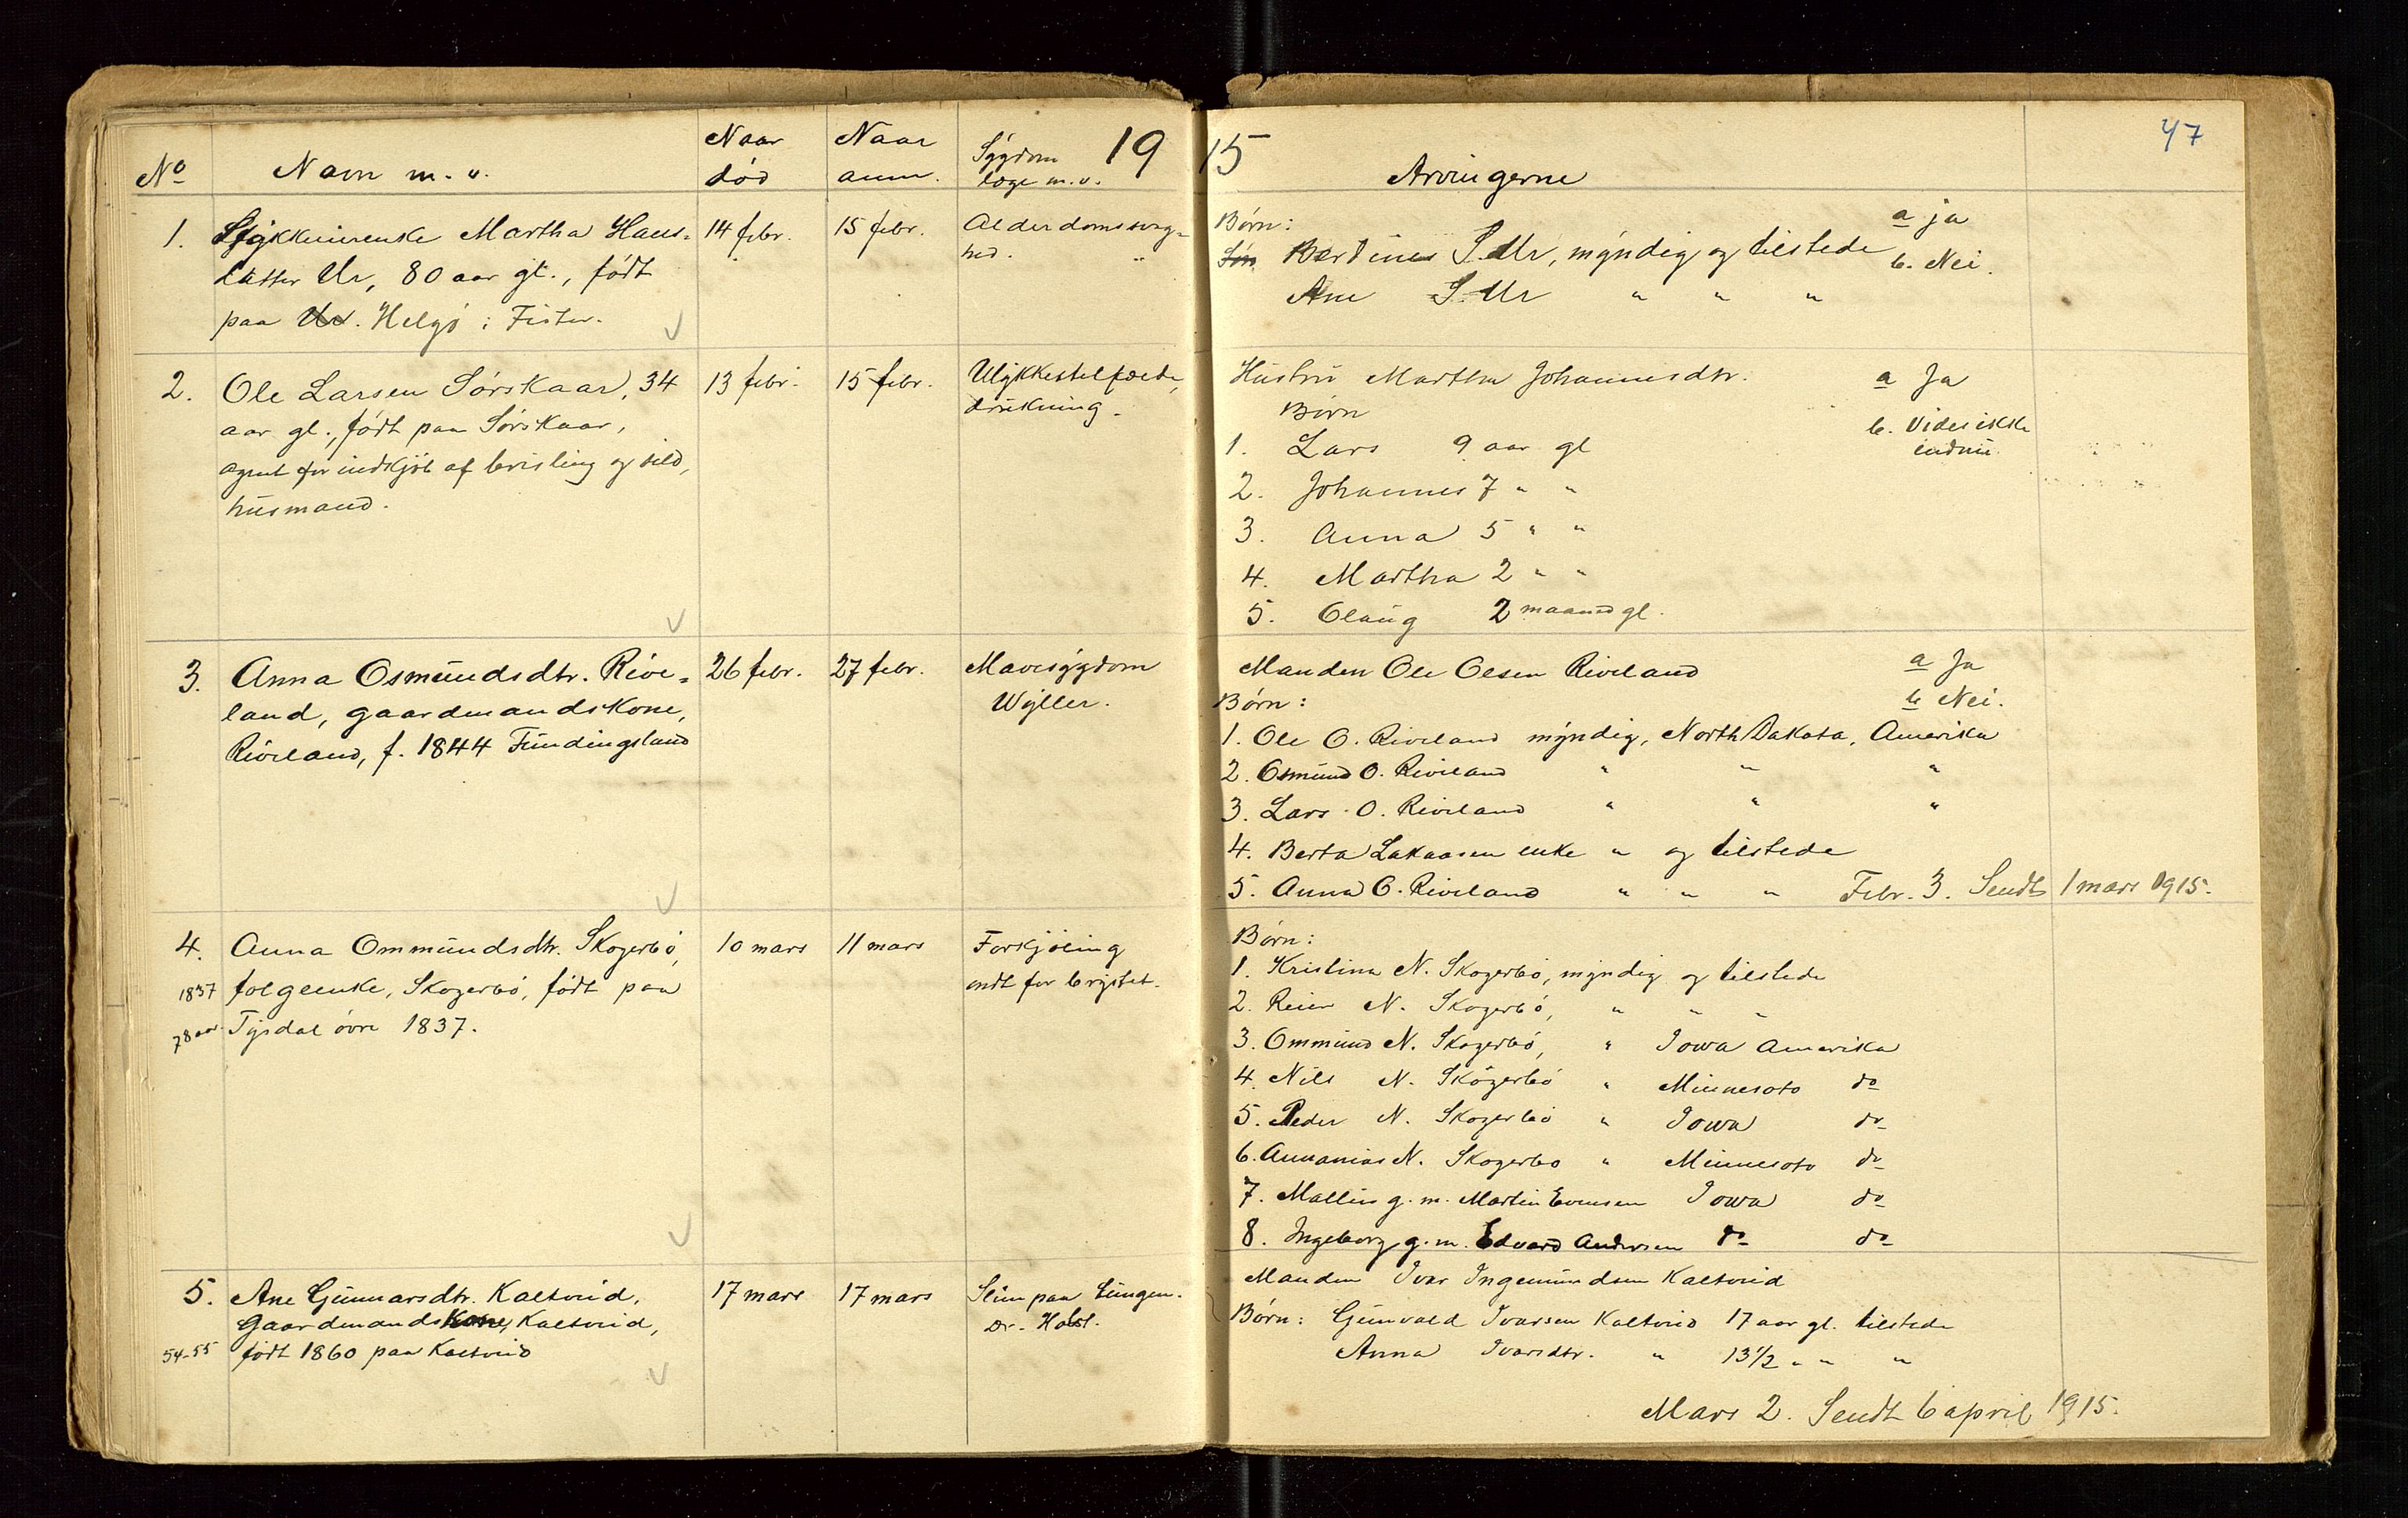 19 15
47
No Navn m. v. Naar død Naar anm. Sygdom læge m. v. Arvingerne
1. Stykkeierenke Martha Hans-
datter Ur, 80 aar gl., født
paa Ur. Helgø i Fister.
14 febr. 15 febr. Alderdomssvag-
hed.
Børn:
Søn Berdines S. Ur, myndig og tilstede
Ane S. Ur " " "
a ja
b. Nei.
2. Ole Larsen Sørskaar, 34
aar gl., født paa Sørskaar,
agent for indkjøb af brisling og sild,
husmand.
13 febr. 15 febr. Ulykkestilfælde,
drukning.
Hustru Martha Johannesdtr.
Børn
1. Lars 9 aar gl
2. Johannes 7 " "
3. Anna 5 " "
4. Martha 2 " "
5. Olaug 2 maaned gl.
a Ja
b. Vides ikke
endnu.
3. Anna Osmundsdtr. Rive-
land, gaardmandskone,
Riveland, f. 1844 Fundingsland
26 febr. 27 febr. Mavesygdom
Wyller.
Manden Ole Olsen Riveland
Børn:
1. Ole O. Riveland myndig, North Dakota, Amerika
2. Osmund O. Riveland " " "
3. Lars O. Riveland " " "
4. Berta Lakaasen enke " og tilstede
5. Anna O. Riveland " " "
a Ja
b Nei.
Febr. 3. Sendt 1 mars 1915.
4. Anna Ommundsdtr. Skogerbø,
1837 folgeenke, Skogerbø, født paa
78 aar Tysdal øvre 1837.
10 mars 11 mars Forkjøling
ondt for brystet.
Børn:
1. Kristina N. Skogerbø, myndig og tilstede
2. Reier N. Skogerbø, " " "
3. Ommund N. Skogerbø, " Iowa Amerika
4. Nils N. Skogerbø " Minnesoto do
5. Peder N. Skogerbø " Iowa do
6. Annanias N. Skogerbø " Minnesoto do
7. Mallin g. m. Martin Evensen Iowa do
8. Ingeborg g. m. Edvard Andersen do do
5. Ane Gunnarsdtr. Kaltveid,
Gaardmandskone, Kaltveid,
54-55 født 1860 paa Kaltveid
17 mars 17 mars Slim paa lungen.
Dr. Holst.
Manden Ivar Ingemundsen Kaltveid
Børn: Gunvald Ivarsen Kaltveid 17 aar gl. tilstede
Anna Ivarsdtr. " 13 1/2 " " "
Mars 2. Sendt 6 april 1915.